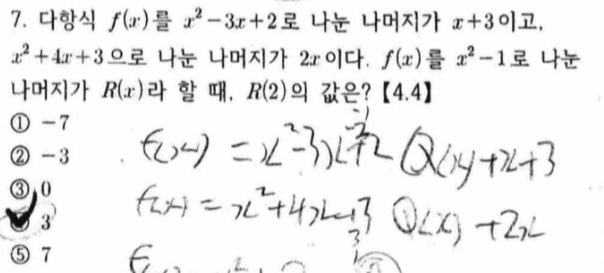 7. 다항식 f(x)를 x²-3x+2로 나눈 나머지가 x+3이고,
x²+4x+3으로 나눈 나머지가 2x이다. f(x)를 x²-1로 나눈
나머지가 R(x)라 할 때, R(2)의 값은? 【4.4】
① -7
② -3
③ 0
3
⑤ 7
f(x) = x²-3x+2 Q(x)+x+3
f(x) = x²+4x+3 Q(x) +2x